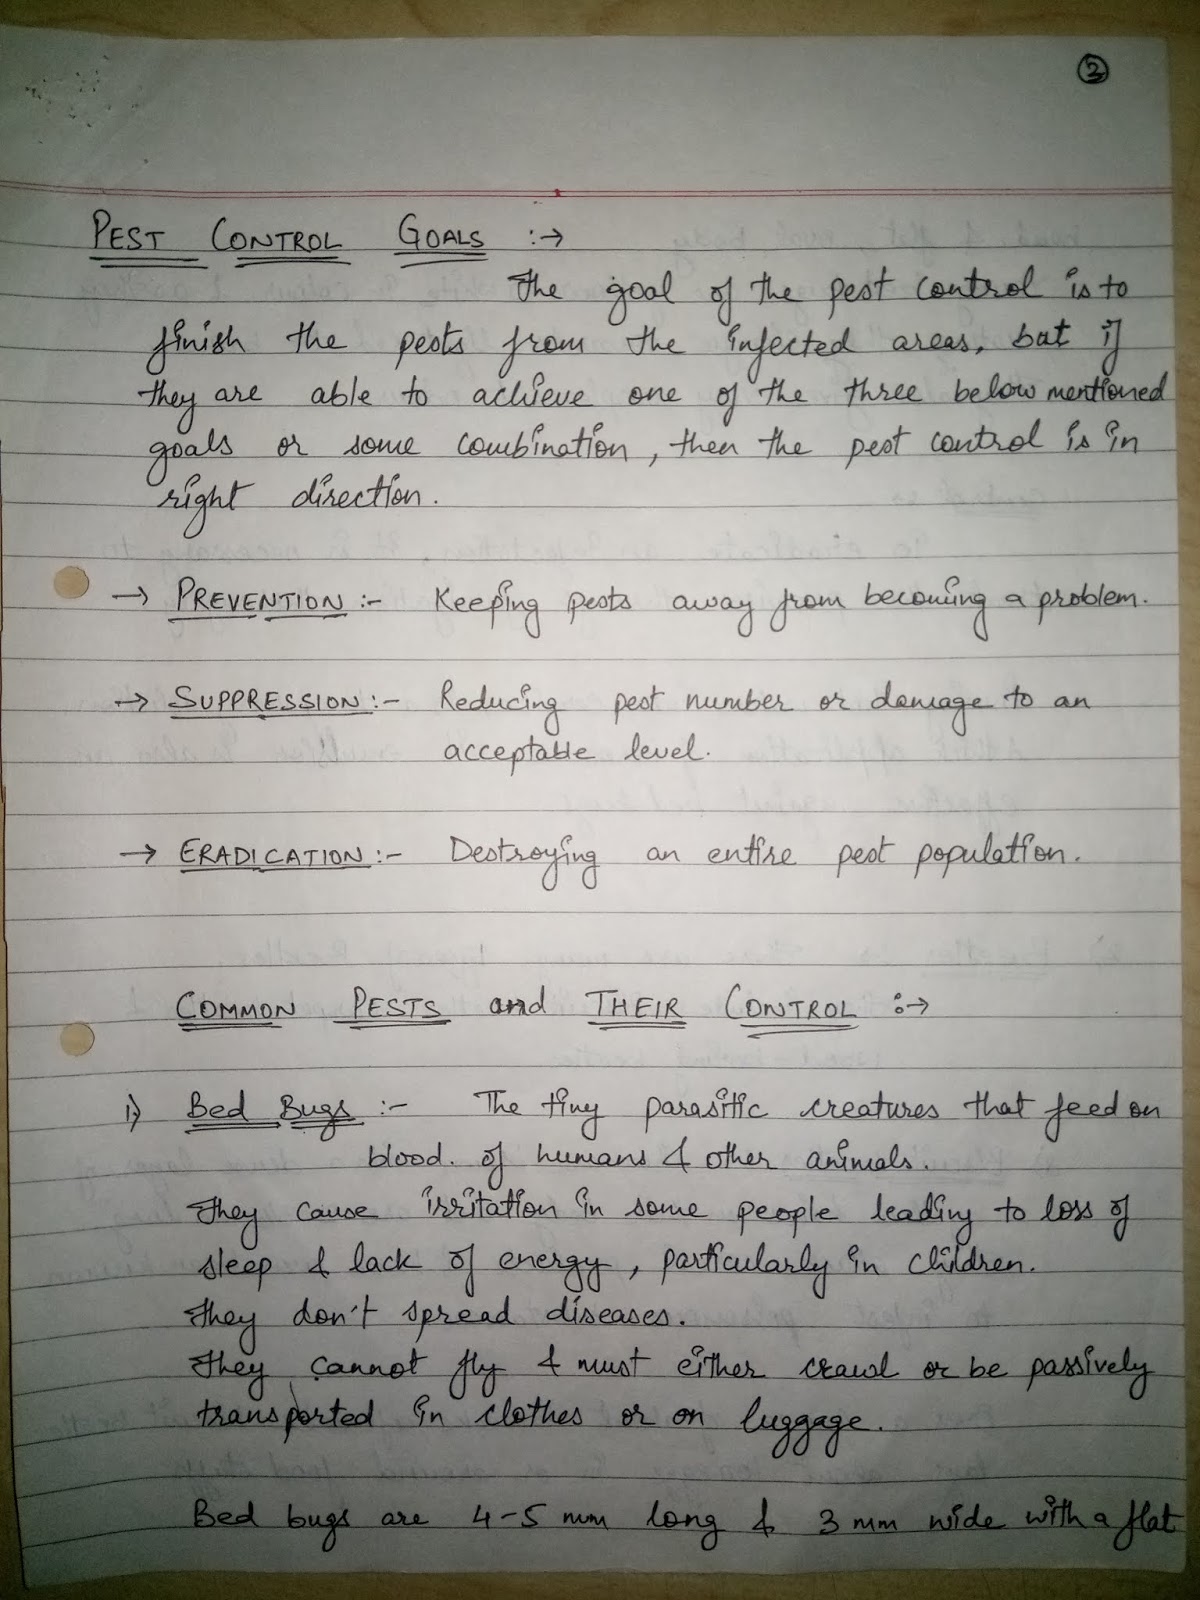 2
PEST CONTROL GOALS :→
The goal of the pest control is to
finish the pests from the infected areas, but if
they are able to achieve one of the three below mentioned
goals or some combination, then the pest control is in
right direction.
→ PREVENTION :- Keeping pests away from becoming a problem.
→ SUPPRESSION :- Reducing pest number or damage to an
acceptable level.
→ ERADICATION :- Destroying an entire pest population.
COMMON PESTS and THEIR CONTROL :→
i) Bed Bugs :- The tiny parasitic creatures that feed on
blood. of humans & other animals.
They cause irritation in some people leading to loss of
sleep & lack of energy, particularly in children.
They don't spread diseases.
They cannot fly & must either crawl or be passively
transported in clothes or on luggage.
Bed bugs are 4-5 mm long & 3 mm wide with a flat